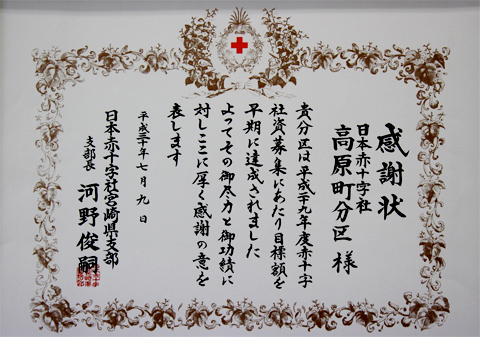 感謝状
日本赤十字社
高原町分区 様
貴分区は平成二十九年度赤十字
社資募集にあたり目標額を
早期に達成されました
よってその御尽力と御功績に
対しここに厚く感謝の意を
表します
平成三十年七月九日
日本赤十字社宮崎県支部
支部長 河野俊嗣